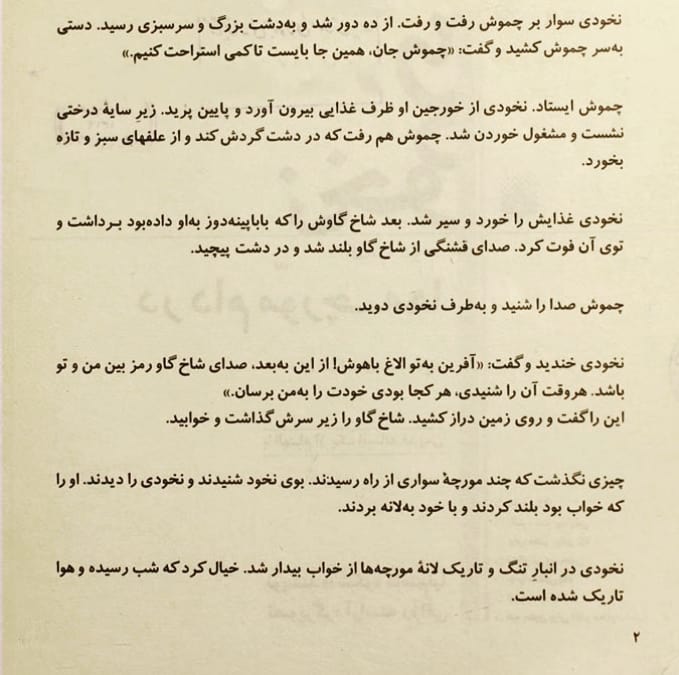 نخودی سوار بر چموش رفت و رفت. از ده دور شد و به‌دشت بزرگ و سرسبزی رسید. دستی
به‌سر چموش کشید و گفت: «چموش جان، همین جا بایست تا کمی استراحت کنیم.»
چموش ایستاد. نخودی از خورجین او ظرف غذایی بیرون آورد و پایین پرید. زیرِ سایهٔ درختی
نشست و مشغول خوردن شد. چموش هم رفت که در دشت گردش کند و از علفهای سبز و تازه
بخورد.
نخودی غذایش را خورد و سیر شد. بعد شاخ گاوش را که باباپینه‌دوز به‌او داده‌بود برداشت و
توی آن فوت کرد. صدای قشنگی از شاخ گاو بلند شد و در دشت پیچید.
چموش صدا را شنید و به‌طرف نخودی دوید.
نخودی خندید و گفت: «آفرین به‌تو الاغ باهوش! از این به‌بعد، صدای شاخ گاو رمز بین من و تو
باشد. هروقت آن را شنیدی، هر کجا بودی خودت را به‌من برسان.»
این را گفت و روی زمین دراز کشید. شاخ گاو را زیر سرش گذاشت و خوابید.
چیزی نگذشت که چند مورچهٔ سواری از راه رسیدند. بوی نخود شنیدند و نخودی را دیدند. او را
که خواب بود بلند کردند و با خود به‌لانه بردند.
نخودی در انبارِ تنگ و تاریک لانهٔ مورچه‌ها از خواب بیدار شد. خیال کرد که شب رسیده و هوا
تاریک شده است.
۲